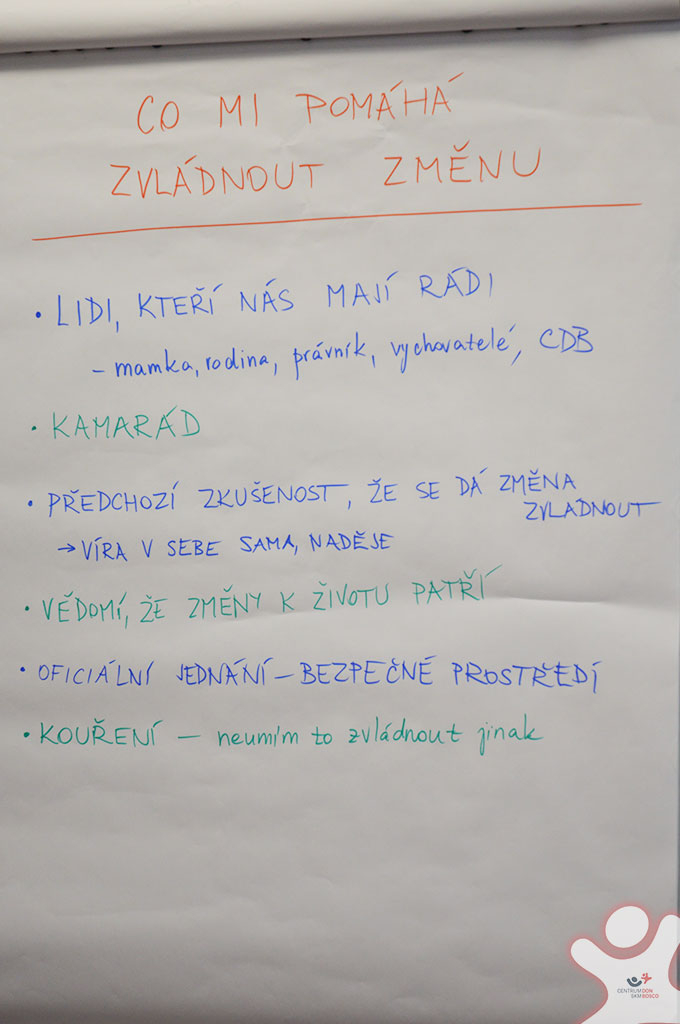 CO MI POMÁHÁ
ZVLÁDNOUT ZMĚNU
• LIDI, KTEŘÍ NÁS MAJÍ RÁDI
– mamka, rodina, právník, vychovatelé, CDB
• KAMARÁD
• PŘEDCHOZÍ ZKUŠENOST, ŽE SE DÁ ZMĚNA
ZVLÁDNOUT
→ VÍRA V SEBE SAMA, NADĚJE
• VĚDOMÍ, ŽE ZMĚNY K ŽIVOTU PATŘÍ
• OFICIÁLNÍ JEDNÁNÍ – BEZPEČNÉ PROSTŘEDÍ
• KOUŘENÍ – neumím to zvládnout jinak
CENTRUM DON
SKM BOSCO